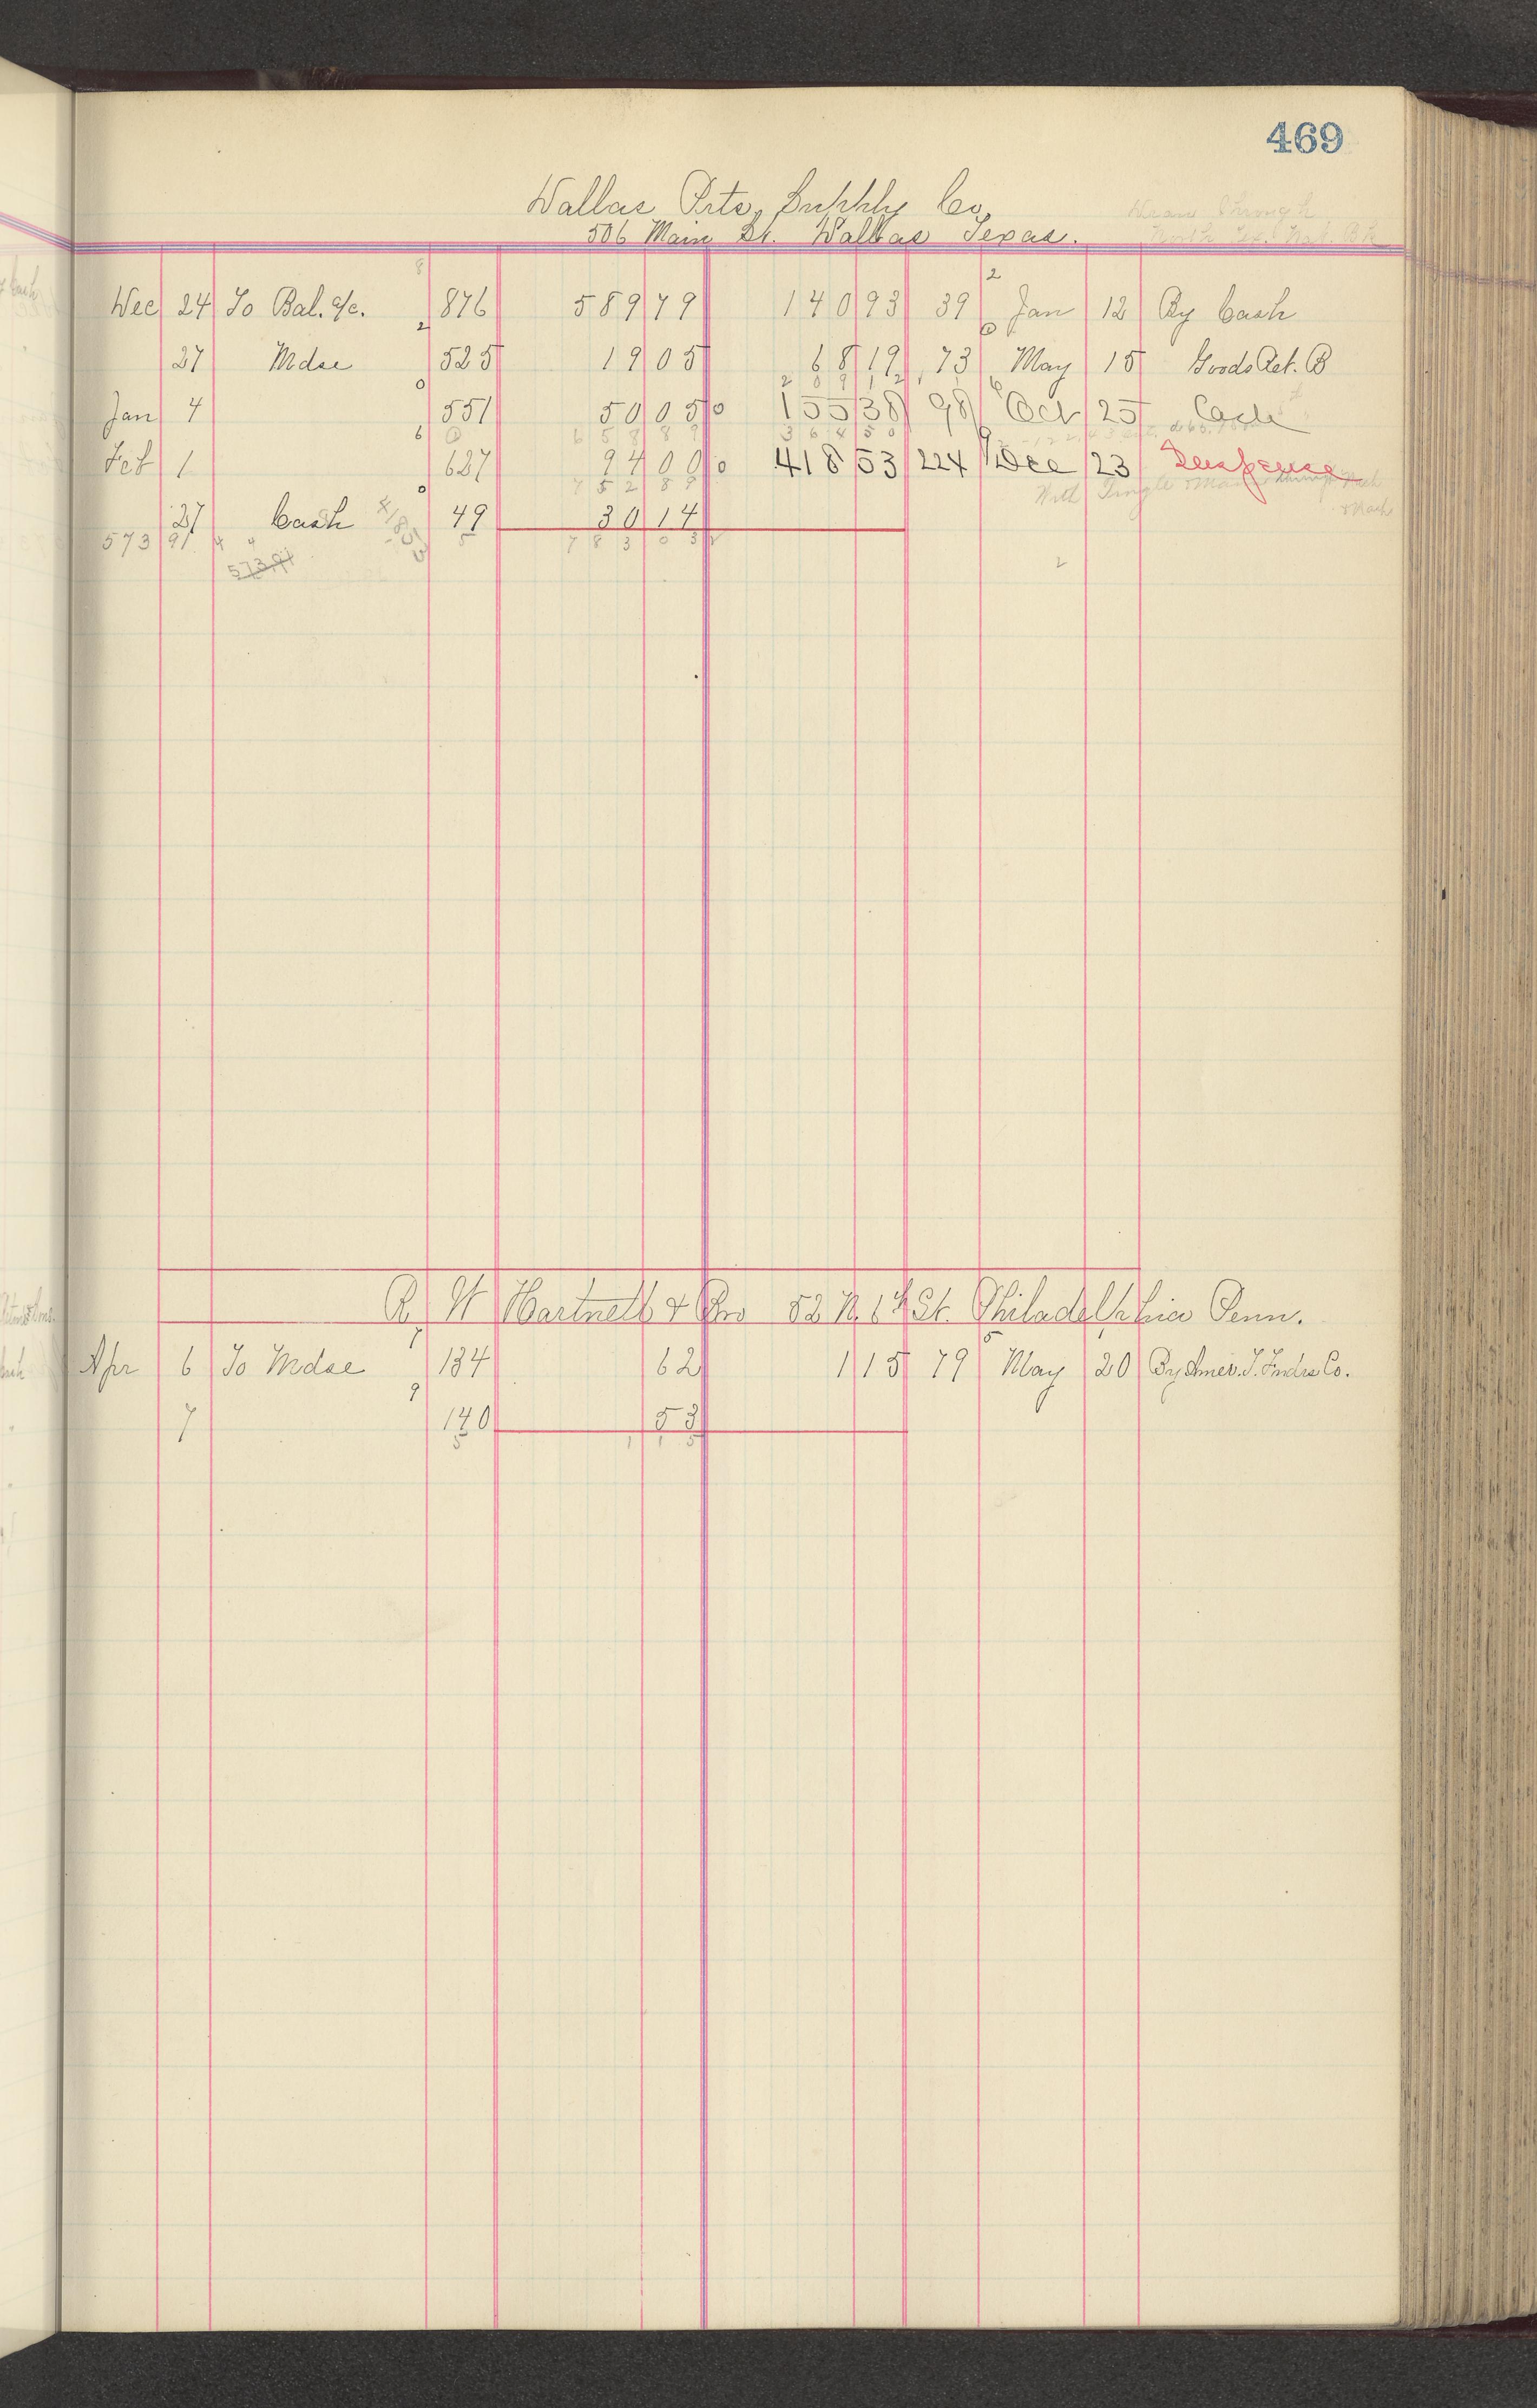 469
Dallas Arts. Supply Co.
506 Main St. Dallas Texas.
Draw through
North Tex. Nat. Bk
Dec 24 To Bal. a/c. 876 589 79 140 93 39 Jan 12 By Cash
27 Mdse 525 19 05 68 19 73 May 15 Goods Ret. B
Jan 4 551 50 05 155 38 98 Oct 25 Cash
Feb 1 627 94 00 418 53 224 Dec 23 Suspense
27 Cash 49 30 14
573 91
573.91
52 N. St. Philadelphia Penn.
Apr 6 To Mdse 134 62 1 15 79 May 20 By Amer. T. Co.
7 140 53